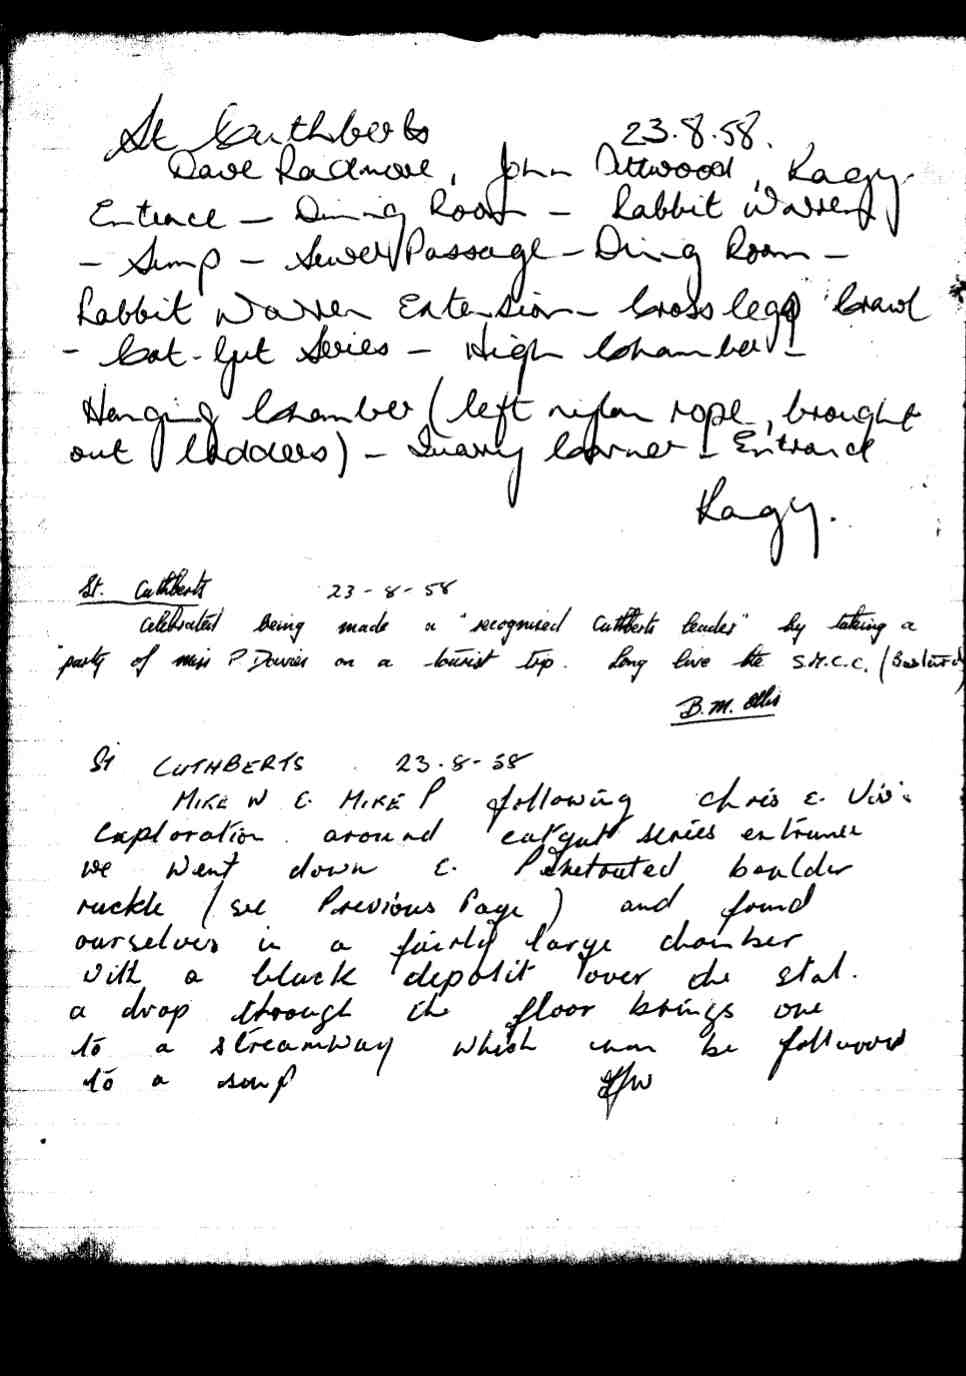 St Cuthberts 23.8.58.
Dave Radmore, John Attwood, Kagy.
Entrace — Dining Room — Rabbit Warren
— Sump — Sewer Passage — Dinig Room —
Rabbit Warren Extension — Cross legs Crawl
— Cat-Gut Series — High Chamber —
Hanging Chamber (left nylon rope, brought
out ladders) — Quarry Corner — Entrance
Kagy.
St. Cuthberts 23-8-58
Celebrated being made a "recognised Cuthberts leader" by taking a
party of miss P. Davies on a tourist trip. Long live the S.M.C.C. (Bastards)
B.M. Ellis
St CUTHBERTS 23-8-58
MIKE W & MIKE P following Chris & Viv's
exploration around catgut series entrance
we went down & Penetrated boulder
ruckle (see Previous Page) and found
ourselves in a fairly large chamber
with a black deposit over the stal.
a drop through the floor brings one
to a streamway which can be followed
to a sump